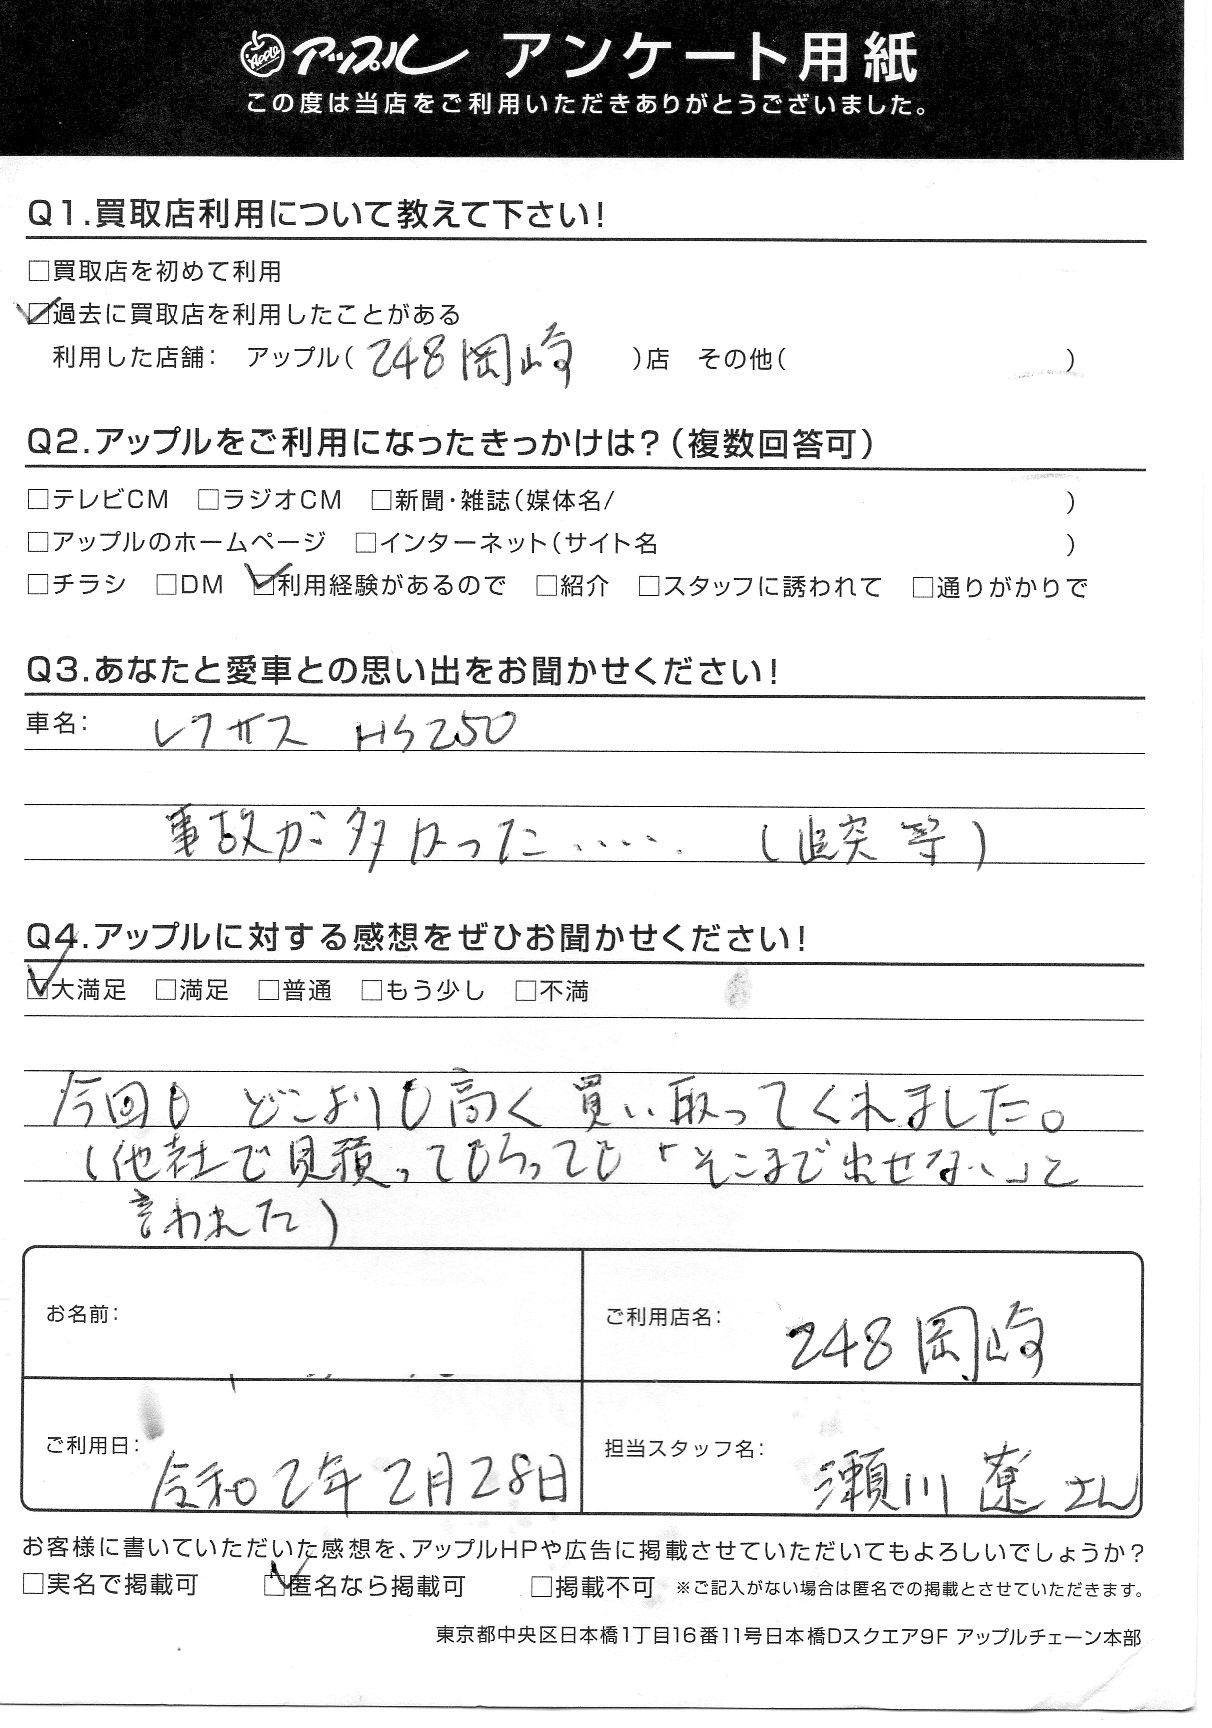 Apple アップル アンケート用紙
この度は当店をご利用いただきありがとうございました。
Q1.買取店利用について教えて下さい!
□買取店を初めて利用
☑過去に買取店を利用したことがある
利用した店舗: アップル( 248岡崎 )店 その他( )
Q2.アップルをご利用になったきっかけは?(複数回答可)
□テレビCM □ラジオCM □新聞・雑誌(媒体名/ )
□アップルのホームページ □インターネット(サイト名 )
□チラシ □DM ☑利用経験があるので □紹介 □スタッフに誘われて □通りがかりで
Q3.あなたと愛車との思い出をお聞かせください!
車名: レクサス HS250
事故が多かった..... (追突等)
Q4.アップルに対する感想をぜひお聞かせください!
☑大満足 □満足 □普通 □もう少し □不満
今回も どこよりも高く買い取ってくれました。
(他社で見積ってもらっても「そこまで出せない」と
言われた)
お名前:
ご利用店名: 248岡崎
ご利用日: 令和2年2月28日
担当スタッフ名: 瀬川 遼さん
お客様に書いていただいた感想を、アップルHPや広告に掲載させていただいてもよろしいでしょうか?
□実名で掲載可 ☑匿名なら掲載可 □掲載不可 ※ご記入がない場合は匿名での掲載とさせていただきます。
東京都中央区日本橋1丁目16番11号日本橋Dスクエア9F アップルチェーン本部